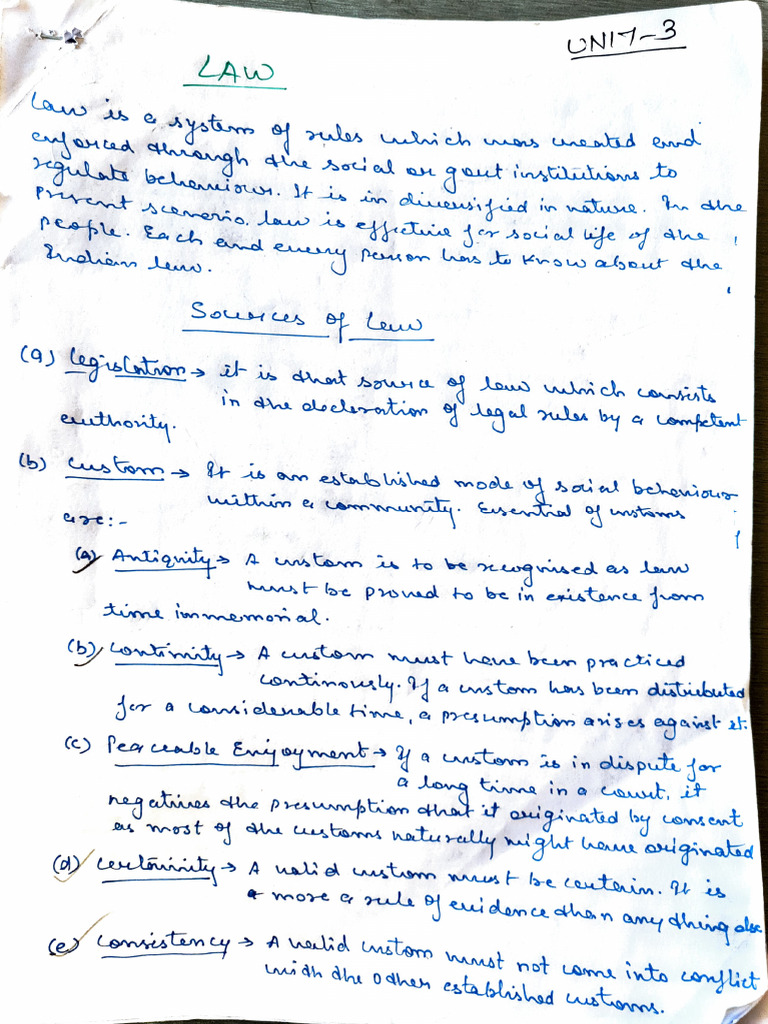 UNIT-3
LAW
Law is a system of rules which was created and
enforced through the social or govt institutions to
regulate behaviour. It is in diversified in nature. In the
present scenario law is effective for social life of the
people. Each and every person has to know about the
Indian law.
Sources of Law
(a) Legislation → it is that source of law which consists
in the decleration of legal rules by a competent
authority.
(b) Custom → It is an established mode of social behaviour
within a community. Essential of customs
are:-
(a) Antiquity → A custom is to be recognised as law
must be proved to be in existence from
time immemorial.
(b) Continity → A custom must have been practiced
continously. If a custom has been distributed
for a considerable time, a presumption arises against it.
(c) Peaceable Enjoyment → If a custom is in dispute for
a long time in a court, it
negatives the presumption that it originated by consent
as most of the customs naturally might have originated
(d) Certainity → A valid custom must be certain. It is
more a rule of evidence than any thing else
(e) Consistency → A valid custom must not come into conflict
with the other established customs.